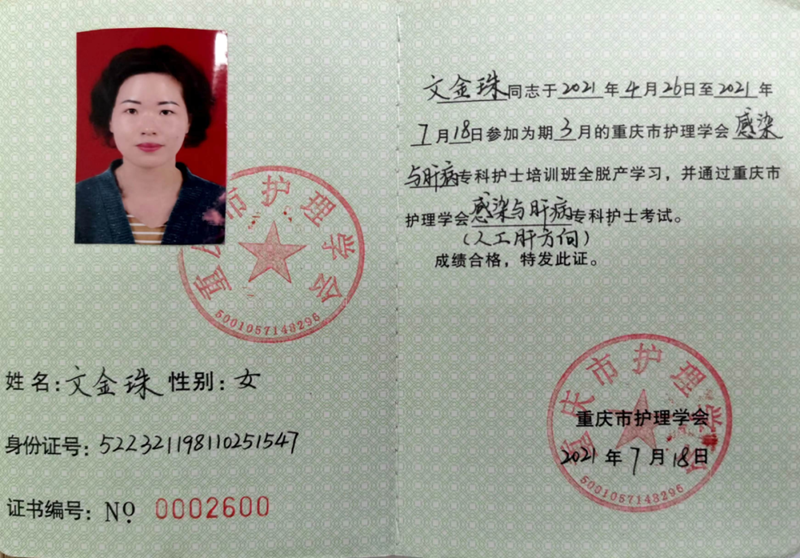 重庆市护理学会
5001057148295
姓名：文金珠 性别：女
身份证号：522321198110251547
证书编号：Nº 0002600
文金珠同志于2021年4月26日至2021年
7月18日参加为期3月的重庆市护理学会感染
与肝病专科护士培训班全脱产学习，并通过重庆市
护理学会感染与肝病专科护士考试。
（人工肝方向）
成绩合格，特发此证。
重庆市护理学会
重庆市护理学会
2021年7月18日
5001057148295